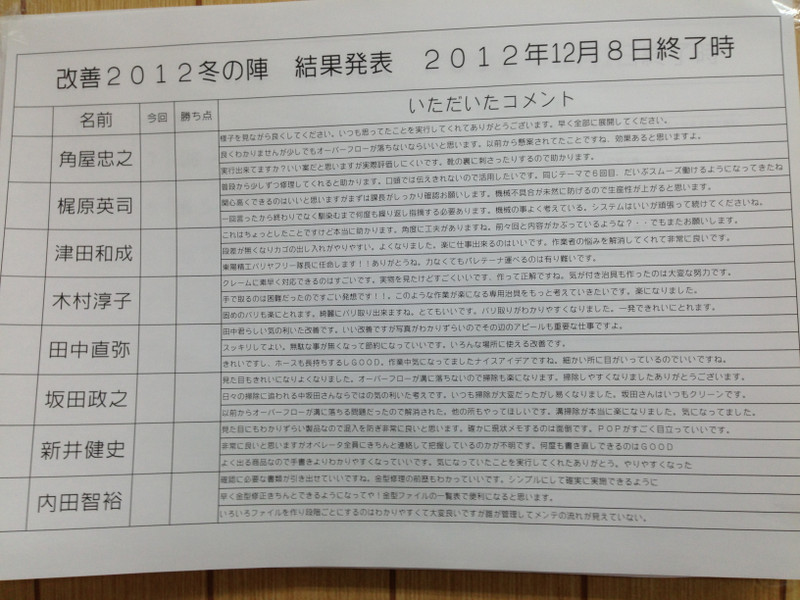 改善２０１２冬の陣　結果発表　２０１２年12月８日終了時
名前　今回　勝ち点　いただいたコメント
角屋忠之
様子を見ながら良くしてください。いつも思ってたことを実行してくれてありがとうございます。早く全部に展開してください。
良くわかりませんが少しでもオーバーフローが落ちないならいいと思います。以前から懸案されてたことですね、効果あると思いますよ。
実行出来てますか？いい案だと思いますが実際評価しにくいです。靴の裏に刺さったりするので助かります。
梶原英司
普段から少しずつ修理してくれると助かります。口頭では伝えきれないので活用したいです。同じテーマで６回目、だいぶスムーズ働けるようになってきたね
関心高くできるのはいいと思いますがまずは課長がしっかり確認お願いします。機械不具合が未然に防げるので生産性が上がると思います。
一回言ったから終わりでなく馴染むまで何度も繰り返し指摘する必要あります。機械の事よく考えている。システムはいいが頑張って続けてくださいね。
津田和成
これはちょっとしたことですけど本当に助かります。角度に工夫がありますね。前々回と内容がかぶっているような？・・でもまたお願いします。
段差が無くなりカゴの出し入れがやりやすい。よくなりました。楽に仕事出来るのはいいです。作業者の悩みを解消してくれて非常に良いです。
東陽精工バリヤフリー隊長に任命します！！ありがとうね。力なくてもパレテーナ運べるのは有り難いです。
木村淳子
クレームに素早く対応できるのはすごいです。実物を見たけどすごくいいです、作って正解ですね。気が付き治具も作ったのは大変な努力です。
手で取るのは困難だったのですごい発想です！！。このような作業が楽になる専用治具をもっと考えていきたいです。楽になりました。
固めのバリも楽にとれます。綺麗にバリ取り出来ますね。とてもいいです。バリ取りがわかりやすくなりました。一発できれいにとれます。
田中直弥
田中君らしい気の利いた改善です。いい改善ですが写真がわかりずらいのでその辺のアピールも重要な仕事ですよ。
スッキリしてよい。無駄な事が無くなって節約になっていいです。いろんな場所に使える改善です。
きれいですし、ホースも長持ちするしＧＯＯＤ。作業中気になってましたナイスアイデアですね。細かい所に目がいっているのでいいですね。
坂田政之
見た目もきれいになりよくなりました。オーバーフローが溝に落ちないので掃除も楽になります。掃除しやすくなりましたありがとうございます。
日々の掃除に追われる中坂田さんならではの気の利いた考えです。いつも掃除が大変だったがし易くなりました。坂田さんはいつもクリーンです。
以前からオーバーフローが溝に落ちる問題だったので解消された。他の所もやってほしいです。溝掃除が本当に楽になりました。気になってました。
新井健史
見た目にもわかりずらい製品なので混入を防ぎ非常に良いと思います。確かに現状メモするのは面倒です。ＰＯＰがすごく目立っていいです。
非常に良いと思いますがオペレータ全員にきちんと連絡して把握しているのかが不明です。何度も書き直しできるのはＧＯＯＤ
よく出る商品なので手書きよりわかりやすくなっていいです。気になっていたことを実行してくれたありがとう。やりやすくなった
内田智裕
確認に必要な書類が引き出せていいですね。金型修理の前歴もわかっていいです。シンプルにして確実に実施できるように
早く金型修正きちんとできるようになってや！金型ファイルの一覧表で便利になると思います。
いろいろファイルを作り段階ごとにするのはわかりやすくて大変良いですが誰が管理してメンテの流れが見えていない。